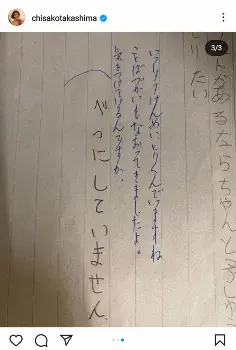 chisakotakashima
3/3
トがあるならちゃんと
りたい
いっしょうけんめいとりくんでいますね
ことばづかいもなおってきましたよ。
気をつけているんですか。
べつにしていません。